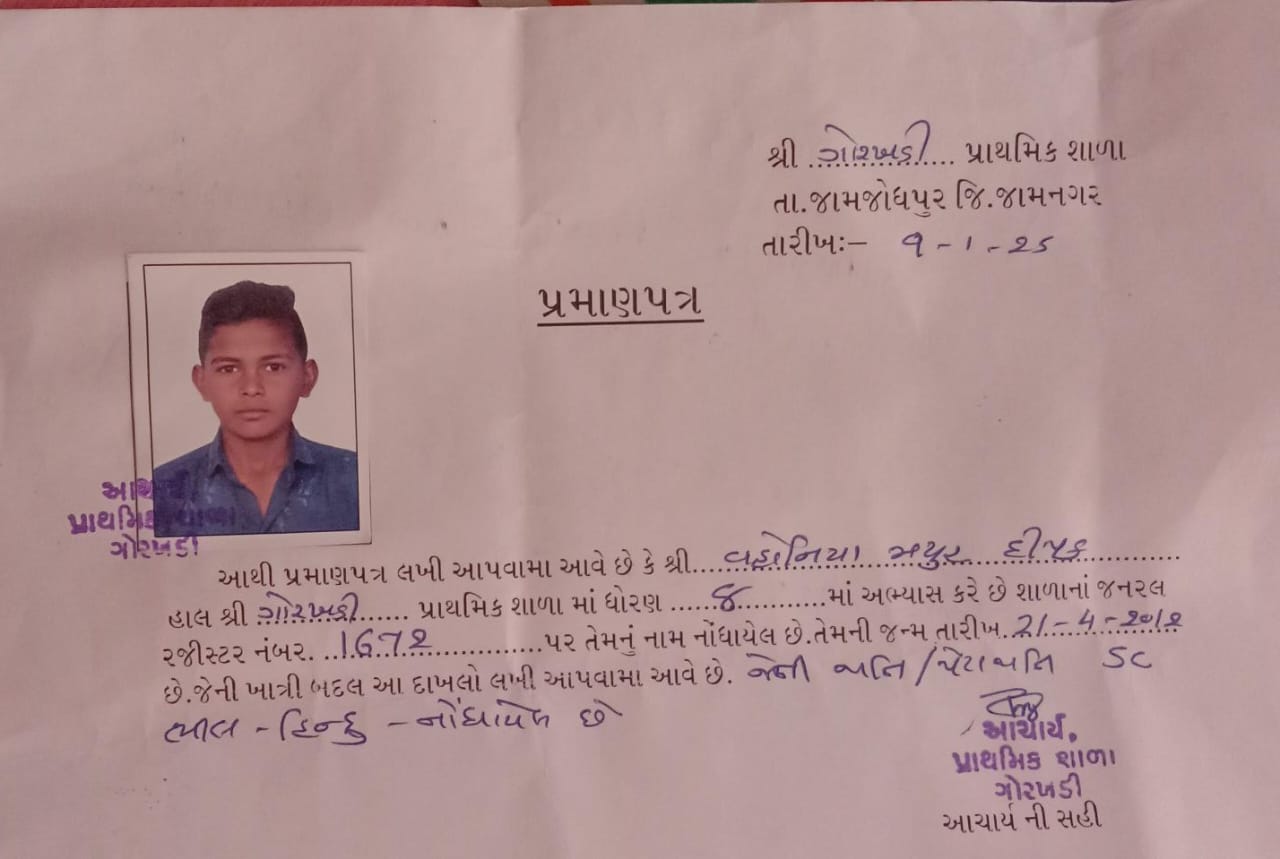 શ્રી ગોરખડી પ્રાથમિક શાળા
તા.જામજોધપુર જિ.જામનગર
તારીખઃ– ૧ - ૧ - ૨૫
પ્રમાણપત્ર
આચાર્ય,
પ્રાથમિક શાળા
ગોરખડી
આથી પ્રમાણપત્ર લખી આપવામા આવે છે કે શ્રી....વહોનિયા મયુર દીપક............
હાલ શ્રી ગોરખડી....... પ્રાથમિક શાળા માં ધોરણ ......૮...........માં અભ્યાસ કરે છે શાળાનાં જનરલ
રજીસ્ટર નંબર. ..1672.................પર તેમનું નામ નોંધાયેલ છે.તેમની જન્મ તારીખ.21-4-2012
છે.જેની ખાત્રી બદલ આ દાખલો લખી આપવામા આવે છે. જેની જાતિ/પેટાજાતિ SC
ભીલ - હિન્દુ - નોંધાયેલ છે
આચાર્ય,
પ્રાથમિક શાળા
ગોરખડી
આચાર્ય ની સહી